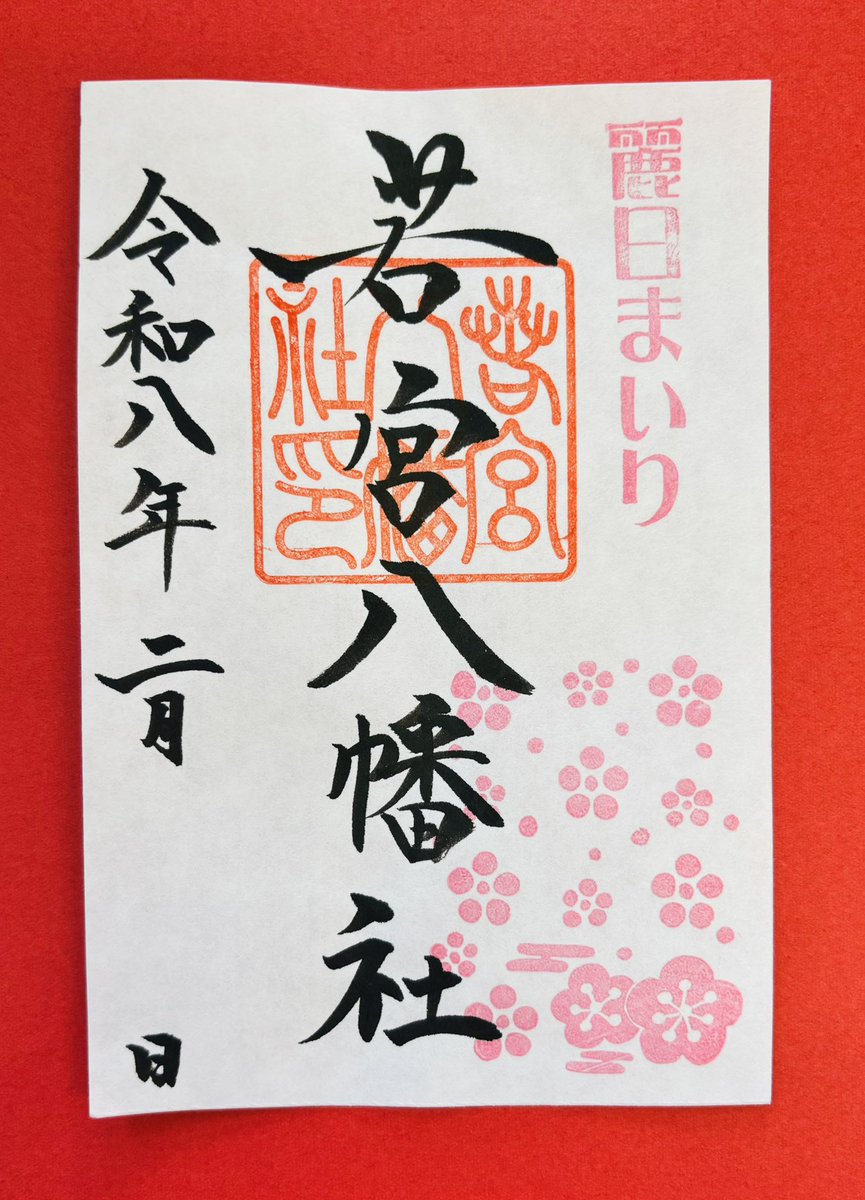 麗日まいり
若宮八幡社
若宮八幡社印
令和八年二月 日